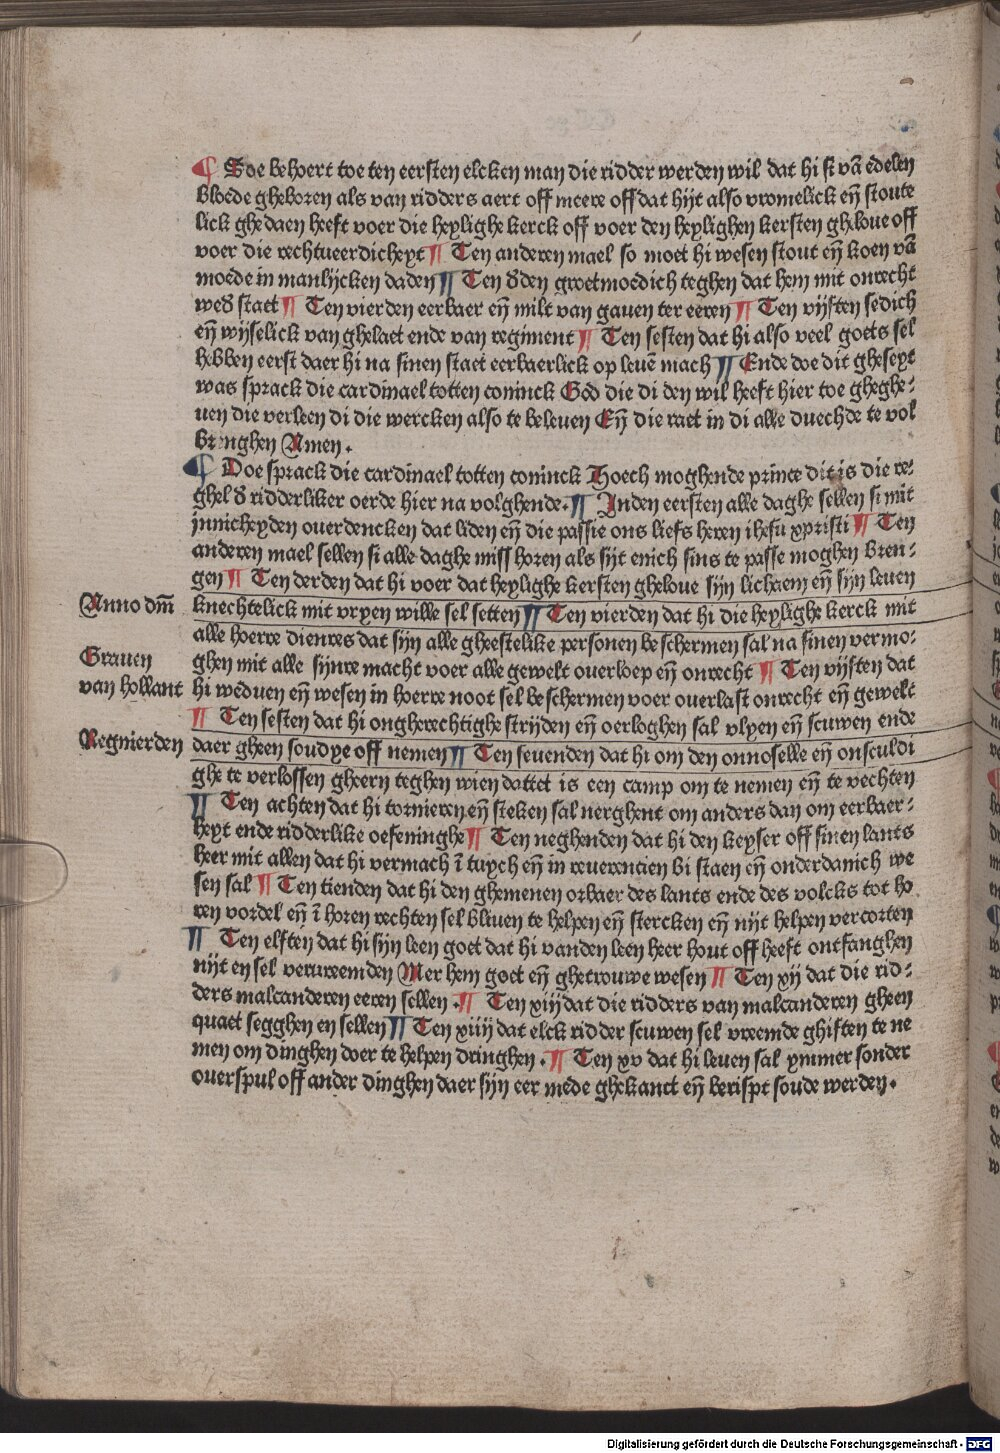 ¶ Soe behoert toe ten eersten elcken man die ridder werden wil dat hi si vā edelen
bloede gheboren als van ridders aert off meere off dat hijt also vromelick eñ stoute
lick ghedaen heeft voer die heylighe kerck off voer den heylighen kersten gheloue off
voer die rechtueerdicheyt ¶ Ten anderen mael so moet hi wesen stout eñ koen vā
moede in manlijcken daden ¶ Ten dden groetmoedich teghen dat hem mit onrecht
wed staet ¶ Ten vierden eerbaer eñ milt van gauen ter eeren ¶ Ten vijften sedich
eñ wijselick van ghelaet ende van regiment ¶ Ten sesten dat hi also veel goets sel
hebben eerst daer hi na sinen staet eerbaerlick op leuē mach ¶ Ende doe dit gheseyt
was sprack die cardinael totten coninck God die di den wil heeft hier toe gheghe-
uen die verleen di die wercken also te beleuen Eñ die raet in di alle duechde te vol
brenghen Amen.
¶ Doe sprack die cardinael totten coninck Hoech moghende prince dit is die re-
ghel d ridderliker oerde hier na volghende. ¶ Inden eersten alle daghe sellen si mit
innicheyden ouerdencken dat liden eñ die passie ons liefs heren ihesu xpristi ¶ Ten
anderen mael sellen si alle daghe miss horen als sijt enich sins te passe moghen bren-
gen ¶ Ten derden dat hi voer dat heylighe kersten gheloue sijn lichaem eñ sijn leuen
Anno dm̄ knechtelick mit vryen wille sel setten ¶ Ten vierden dat hi die heylighe kerck mit
alle hoerre dienres dat sijn alle gheestelike personen beschermen sal na sinen vermo-
Grauen ghen mit alle sijnre macht voer alle gewelt ouerloep eñ onrecht ¶ Ten vijften dat
van hollant hi weduen eñ wesen in hoerre noot sel beschermen voer ouerlast onrecht eñ gewelt
¶ Ten sesten dat hi ongherechtighe strijden eñ oerloghen sal vlyen eñ scuwen ende
Regnierden daer gheen soudye off nemen ¶ Ten seuenden dat hi om den onnoselle eñ onsculdi
ghe te verlossen gheern teghen wien dattet is een camp om te nemen eñ te vechten
¶ Ten achten dat hi tornieren eñ steken sal nerghent om anders dan om eerbaer-
heyt ende ridderlike oefeninghe ¶ Ten neghenden dat hi den keyser off sinen lants
heer mit allen dat hi vermach ī tuych eñ in reuerencien bi staen eñ onderdanich we
sen sal ¶ Ten tienden dat hi den ghemenen orbaer des lants ende des volcks tot ho
ren vordel eñ ī horen rechten sel bliuen te helpen eñ stercken eñ nijt helpen vercorten
¶ Ten elften dat hi sijn leen goet dat hi vanden leen heer hout off heeft ontfanghen
nijt en sel verureemden Mer hem goet eñ ghetrouwe wesen ¶ Ten xij dat die rid-
ders malcanderen eeren sellen . ¶ Ten xiij dat die ridders van malcanderen gheen
quaet segghen en sellen ¶ Ten xiiij dat elck ridder scuwen sel vreemde ghiften te ne
men om dinghen doer te helpen dringhen . ¶ Ten xv dat hi leuen sal ymmer sonder
ouerspul off ander dinghen daer sijn eer mede ghekanct eñ berispt soude werden.
Digitalisierung gefördert durch die Deutsche Forschungsgemeinschaft - DFG